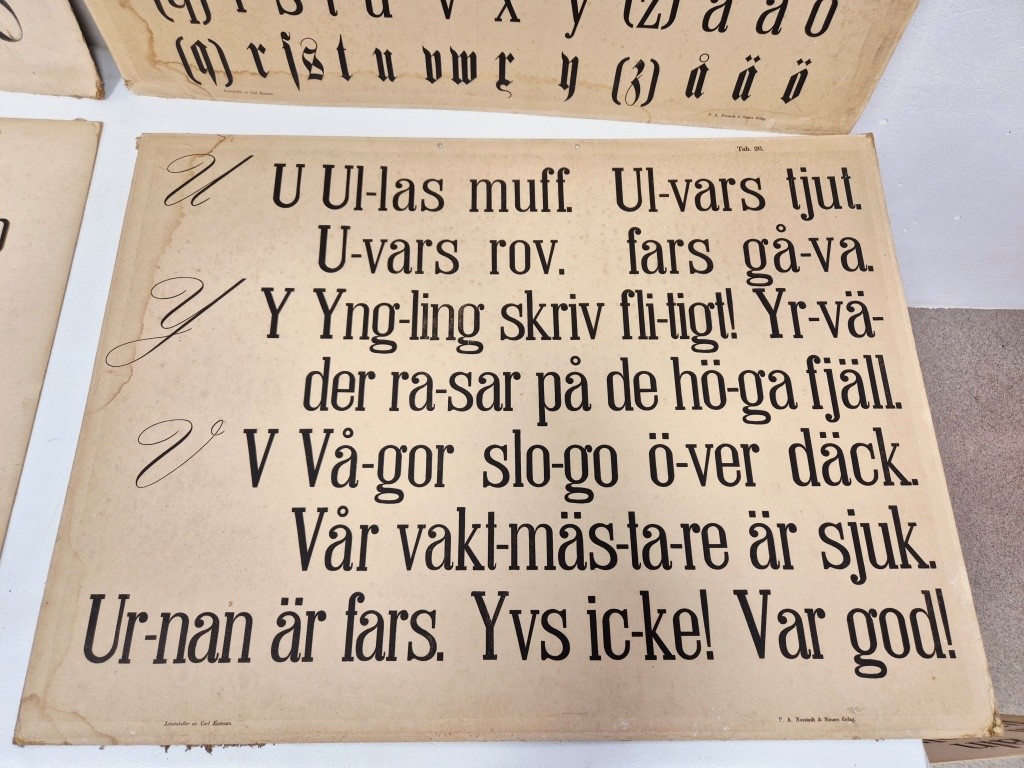 (q) r s t u v x y (z) å ä ö
(q) r ſs t u v w x y (z) å ä ö
Tab. 26.
U U Ul-las muff. Ul-vars tjut.
U-vars rov. fars gå-va.
Y Y Yng-ling skriv fli-tigt! Yr-vä-
der ra-sar på de hö-ga fjäll.
V V Vå-gor slo-go ö-ver däck.
Vår vakt-mäs-ta-re är sjuk.
Ur-nan är fars. Yvs ic-ke! Var god!
P. A. Norstedt & Söners förlag.